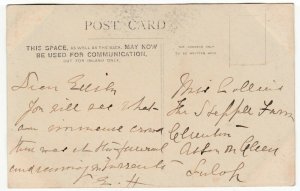 POST CARD
THIS SPACE, AS WELL AS THE BACK, MAY NOW
BE USED FOR COMMUNICATION,
BUT FOR INLAND ONLY.
THE ADDRESS ONLY
TO BE WRITTEN HERE
Dear
You will see what
an immense crowd
there was at the funeral
E. H
Miss Collins
The Farm
Clunton
Aston on Clun
Salop